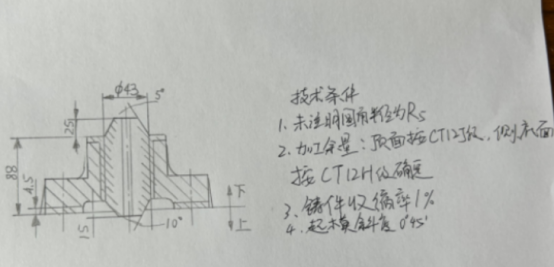 φ43
5°
25
88
4.5
15
10°
下
上
技术条件
1. 未注明圆角半径为R5
2. 加工余量：顶面按CT12J级，侧、底面
按CT12H级确定
3. 铸件收缩率1%
4. 起模斜度0°45'